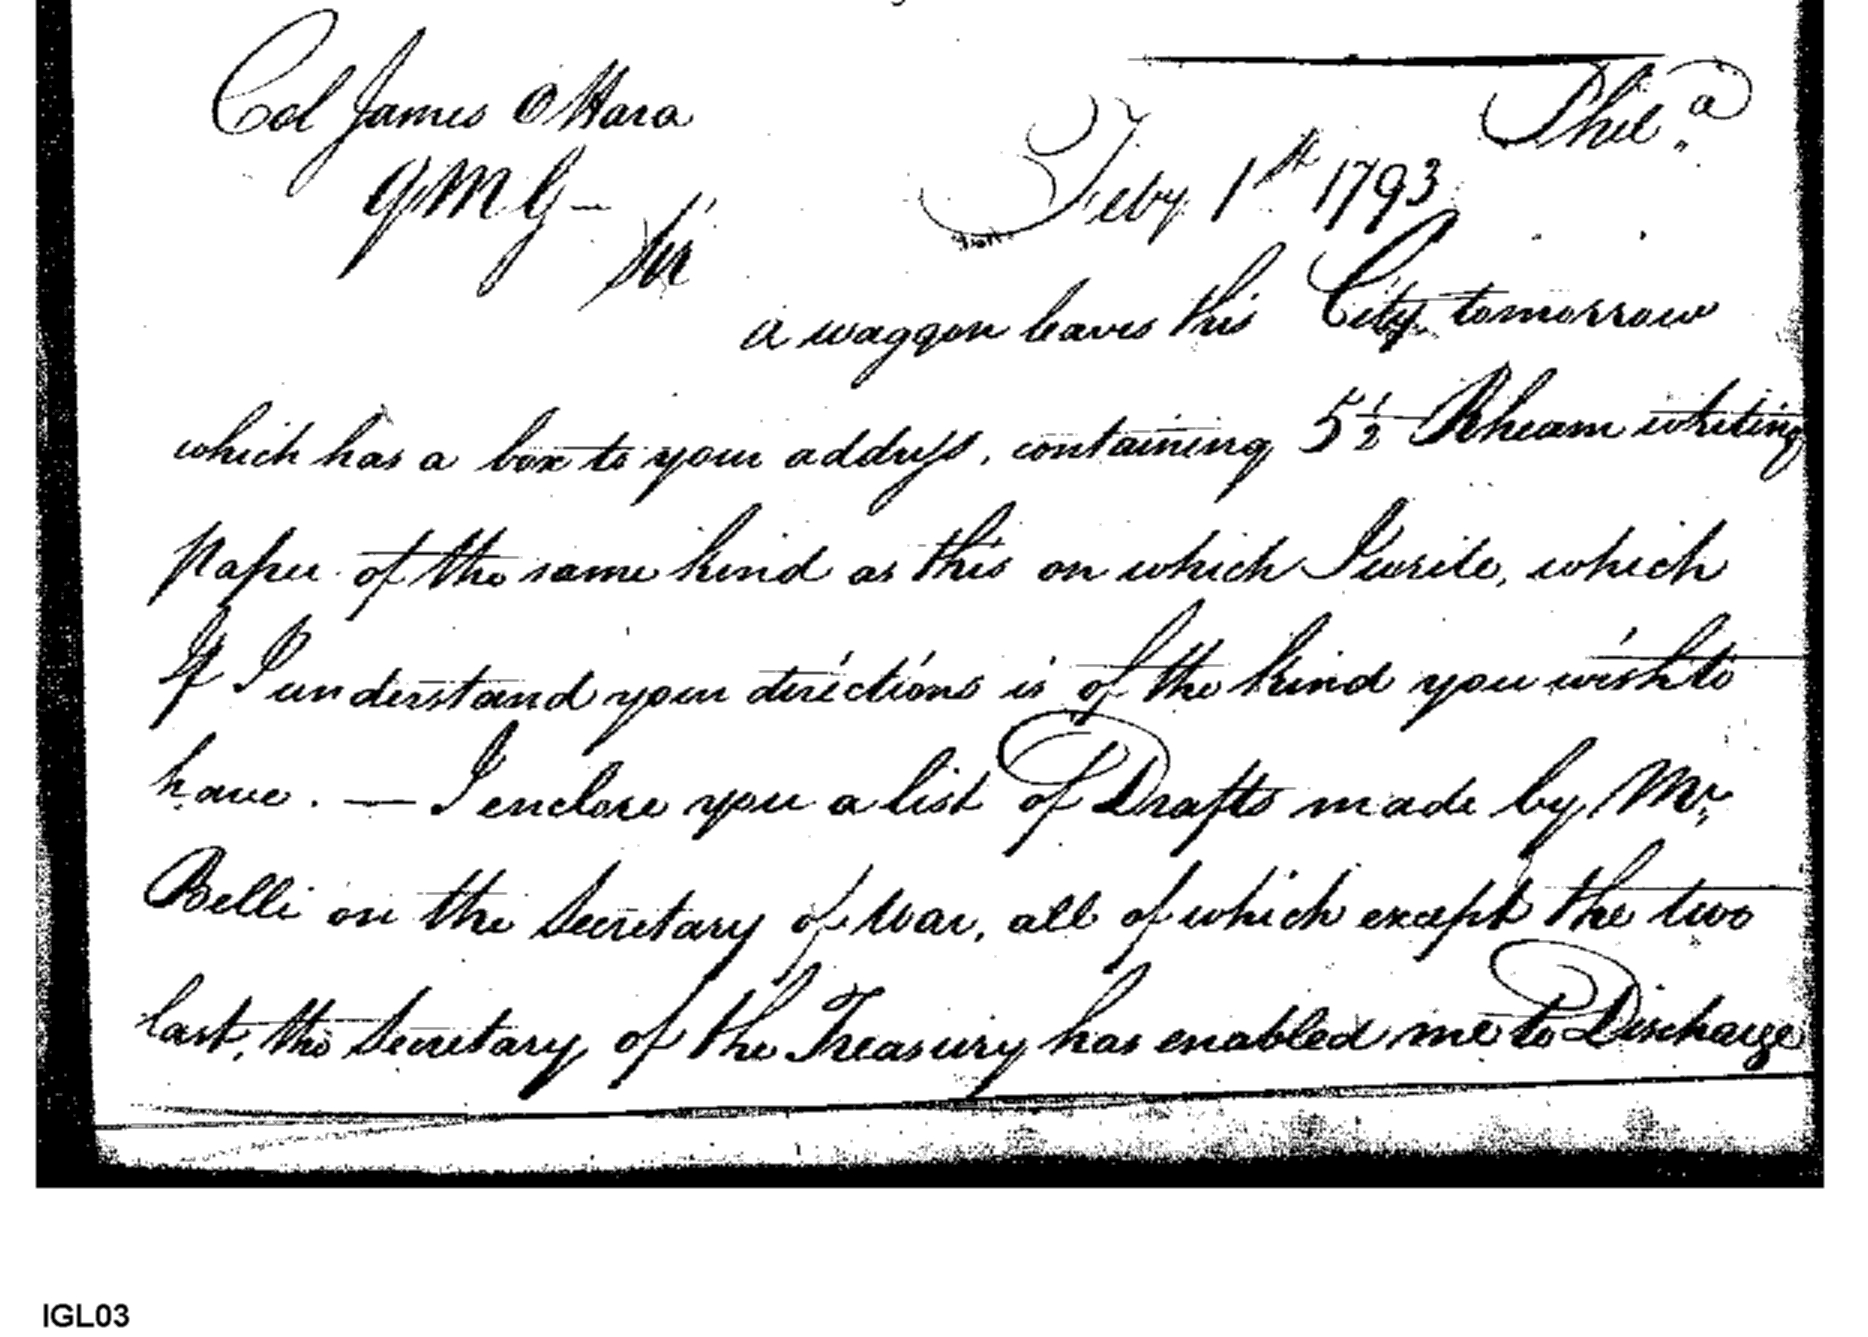 Col James OHara
Phil.a
QMG—
Feby 1st 1793
Sir
a waggon leaves this City tomorrow
which has a box to your address, containing 5 1/2 Rheam whiting
paper of the same kind as this on which I write, which
If I understand your directions is of the kind you wish to
have. — I enclose you a list of Drafts made by Mr
Belli on the Secretary of War, all of which except the two
last, the Secretary of the Treasury has enabled me to Discharge
IGL03